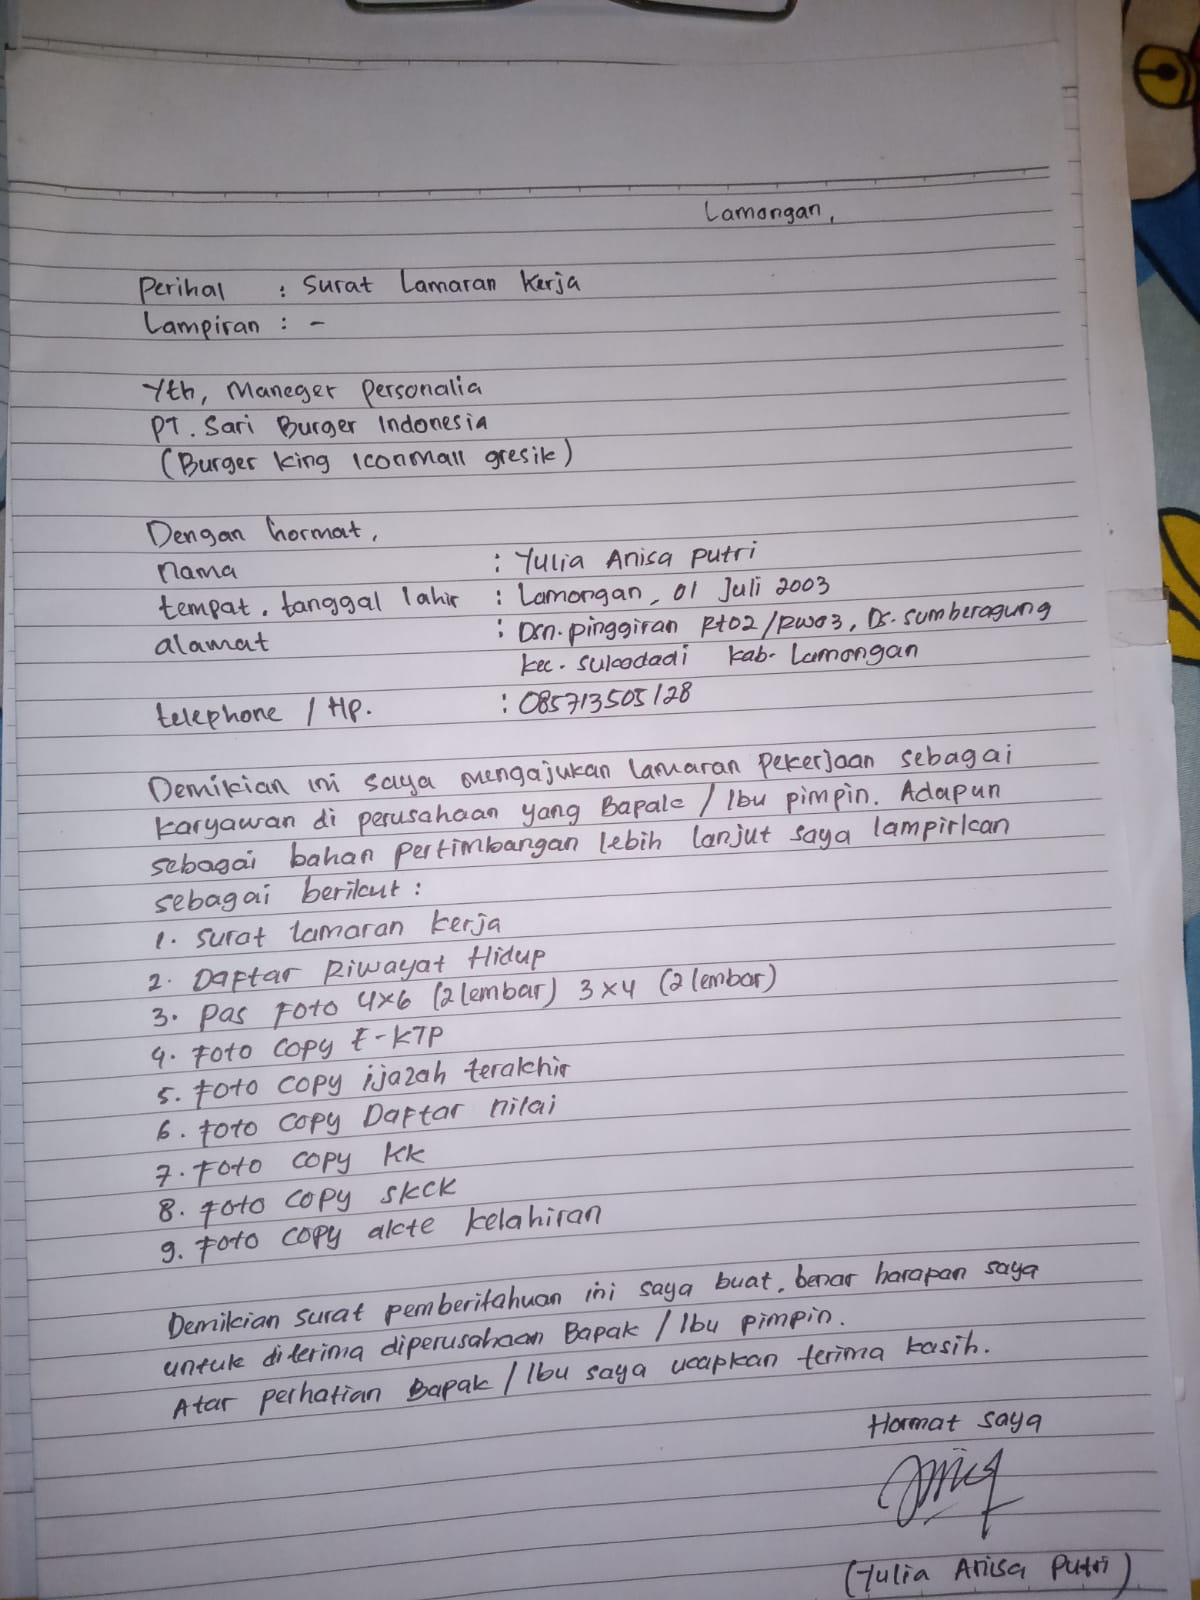 Lamongan,
Perihal : Surat Lamaran Kerja
Lampiran : -
Yth, Maneger Personalia
PT. Sari Burger Indonesia
(Burger King Iconmall gresik)
Dengan hormat,
nama : Yulia Anisa Putri
tempat, tanggal lahir : Lamongan, 01 Juli 2003
alamat : Dsn. pinggiran Rt02/RW03, Ds. Sumberagung
kec. sukodadi kab. Lamongan
telephone / Hp. : 085713505128
Demikian ini saya mengajukan lamaran pekerjaan sebagai
karyawan di perusahaan yang Bapak / Ibu pimpin. Adapun
sebagai bahan pertimbangan lebih lanjut saya lampirkan
sebagai berikut :
1. Surat lamaran kerja
2. Daftar Riwayat Hidup
3. Pas Foto 4x6 (2 lembar) 3x4 (2 lembar)
4. Foto copy E-KTP
5. Foto copy ijazah terakhir
6. Foto copy Daftar nilai
7. Foto copy KK
8. Foto copy SKCK
9. Foto copy akte kelahiran
Demikian surat pemberitahuan ini saya buat, benar harapan saya
untuk diterima diperusahaan Bapak / Ibu pimpin.
Atar perhatian Bapak / Ibu saya ucapkan terima kasih.
Hormat saya
(Yulia Anisa Putri)